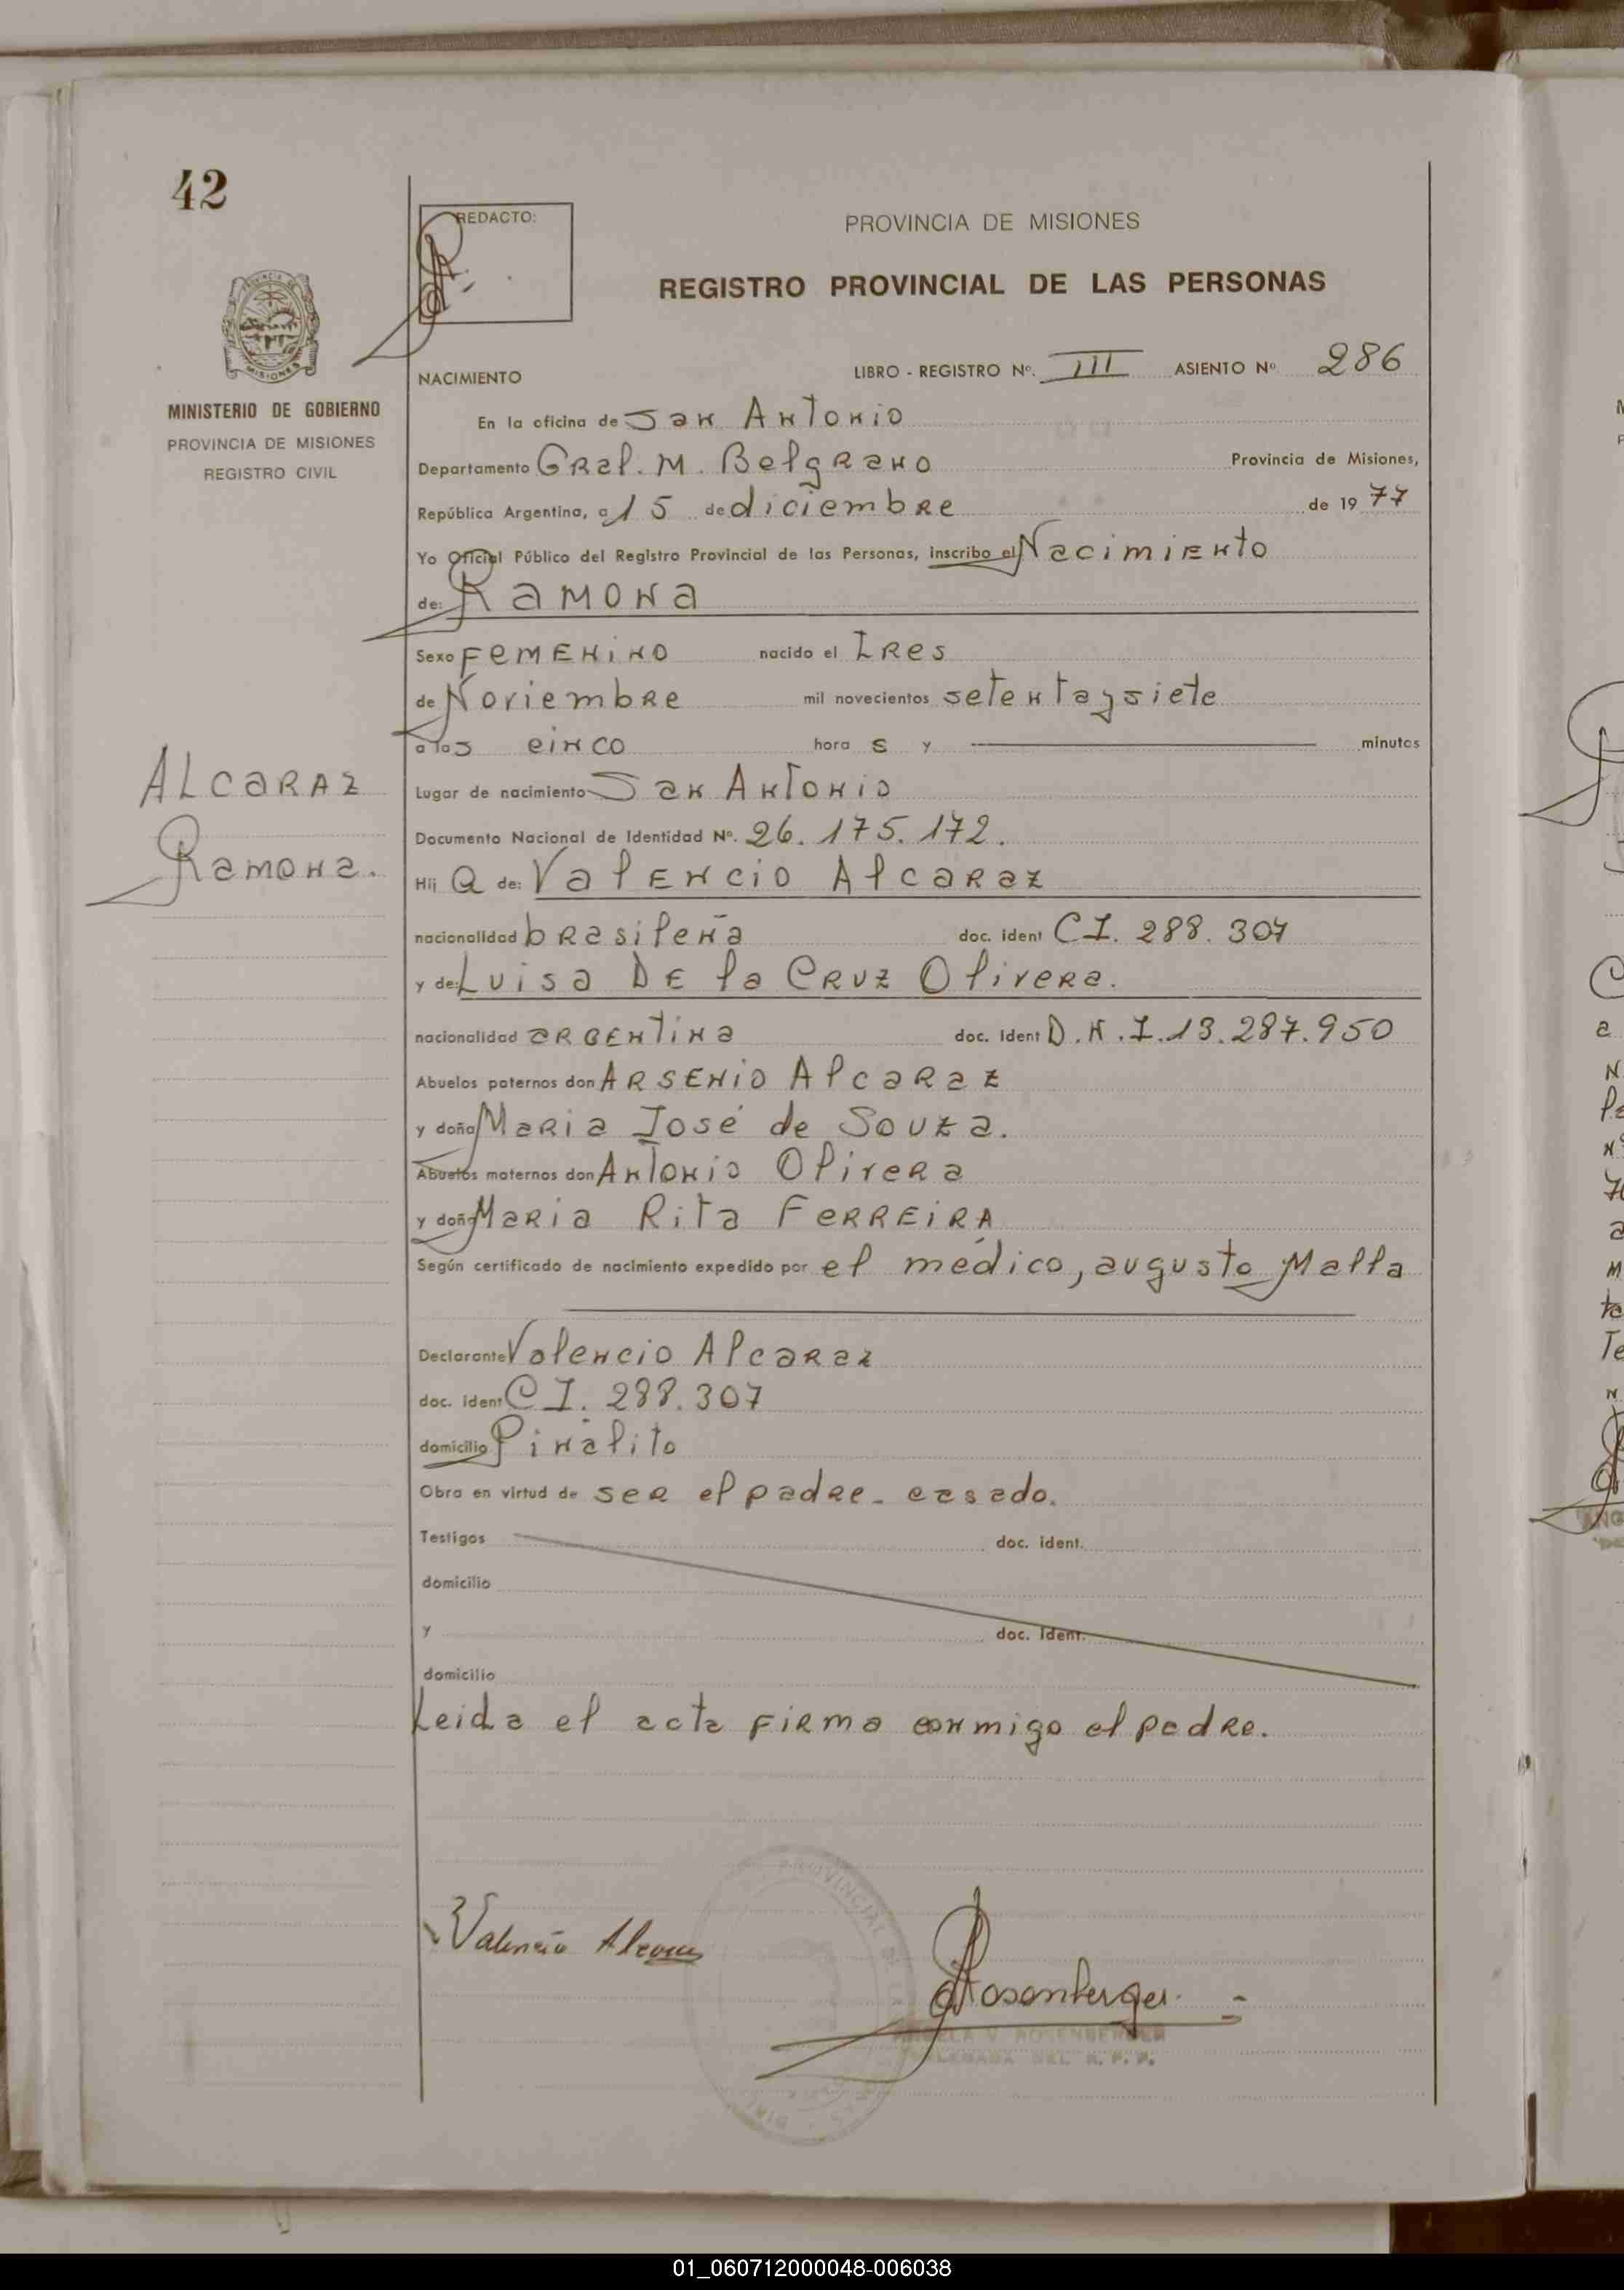 42
REDACTO:
PROVINCIA DE MISIONES
REGISTRO PROVINCIAL DE LAS PERSONAS
MINISTERIO DE GOBIERNO
PROVINCIA DE MISIONES
REGISTRO CIVIL
NACIMIENTO LIBRO - REGISTRO Nº. III ASIENTO Nº 286
En la oficina de San Antonio
Departamento Gral. M. Belgrano Provincia de Misiones,
República Argentina, a 15 de diciembre de 1977
Yo Oficial Público del Registro Provincial de las Personas, inscribo el Nacimiento
de: Ramona
Sexo Femenino nacido el Tres
de Noviembre mil novecientos setentaysiete
a las cinco hora s y minutos
ALCARAZ
Ramona.
Lugar de nacimiento San Antonio
Documento Nacional de Identidad Nº. 26.175.172.
Hij a de: Valencio Alcaraz
nacionalidad brasileña doc. ident CI. 288.307
y de: Luisa De la Cruz Olivera.
nacionalidad argentina doc. ident D.N.I. 13.287.950
Abuelos paternos don Arsenio Alcaraz
y doña Maria José de Souza.
Abuelos maternos don Antonio Olivera
y doña Maria Rita Ferreira
Según certificado de nacimiento expedido por el médico, augusto Malla
Declarante Valencio Alcaraz
doc. ident CI. 288.307
domicilio Piñalito
Obra en virtud de ser el padre - casado.
Testigos doc. ident.
domicilio
y doc. ident.
domicilio
Leida el acta firma conmigo el padre.
Valencio Alcaraz
Rosenberger
ANGELA V. ROSENBERGER
DELEGADA DEL R. P. P.
01_060712000048-006038